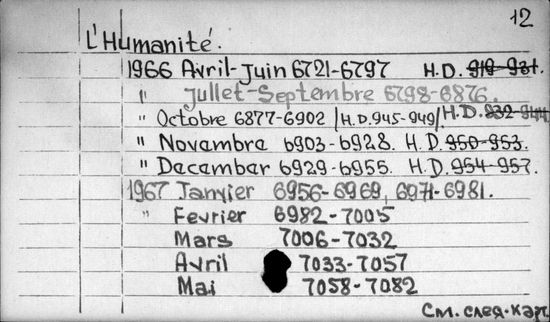 12
L'Humanité.
1966 Avril-Juin 6721-6797 H.D. 919-931.
" Jullet-Septembre 6798-6876.
" Octobre 6877-6902 /H.D.945-949/ H.D.
" Novembre 6903-6928. H.D. 950-953.
" Dacambar 6929-6955. H.D. 954-957.
1967 Janvier 6956-6969, 6971-6981.
" Fevrier 6982-7005
Mars 7006-7032
Avril 7033-7057
Mai 7058-7082
См. след. карт